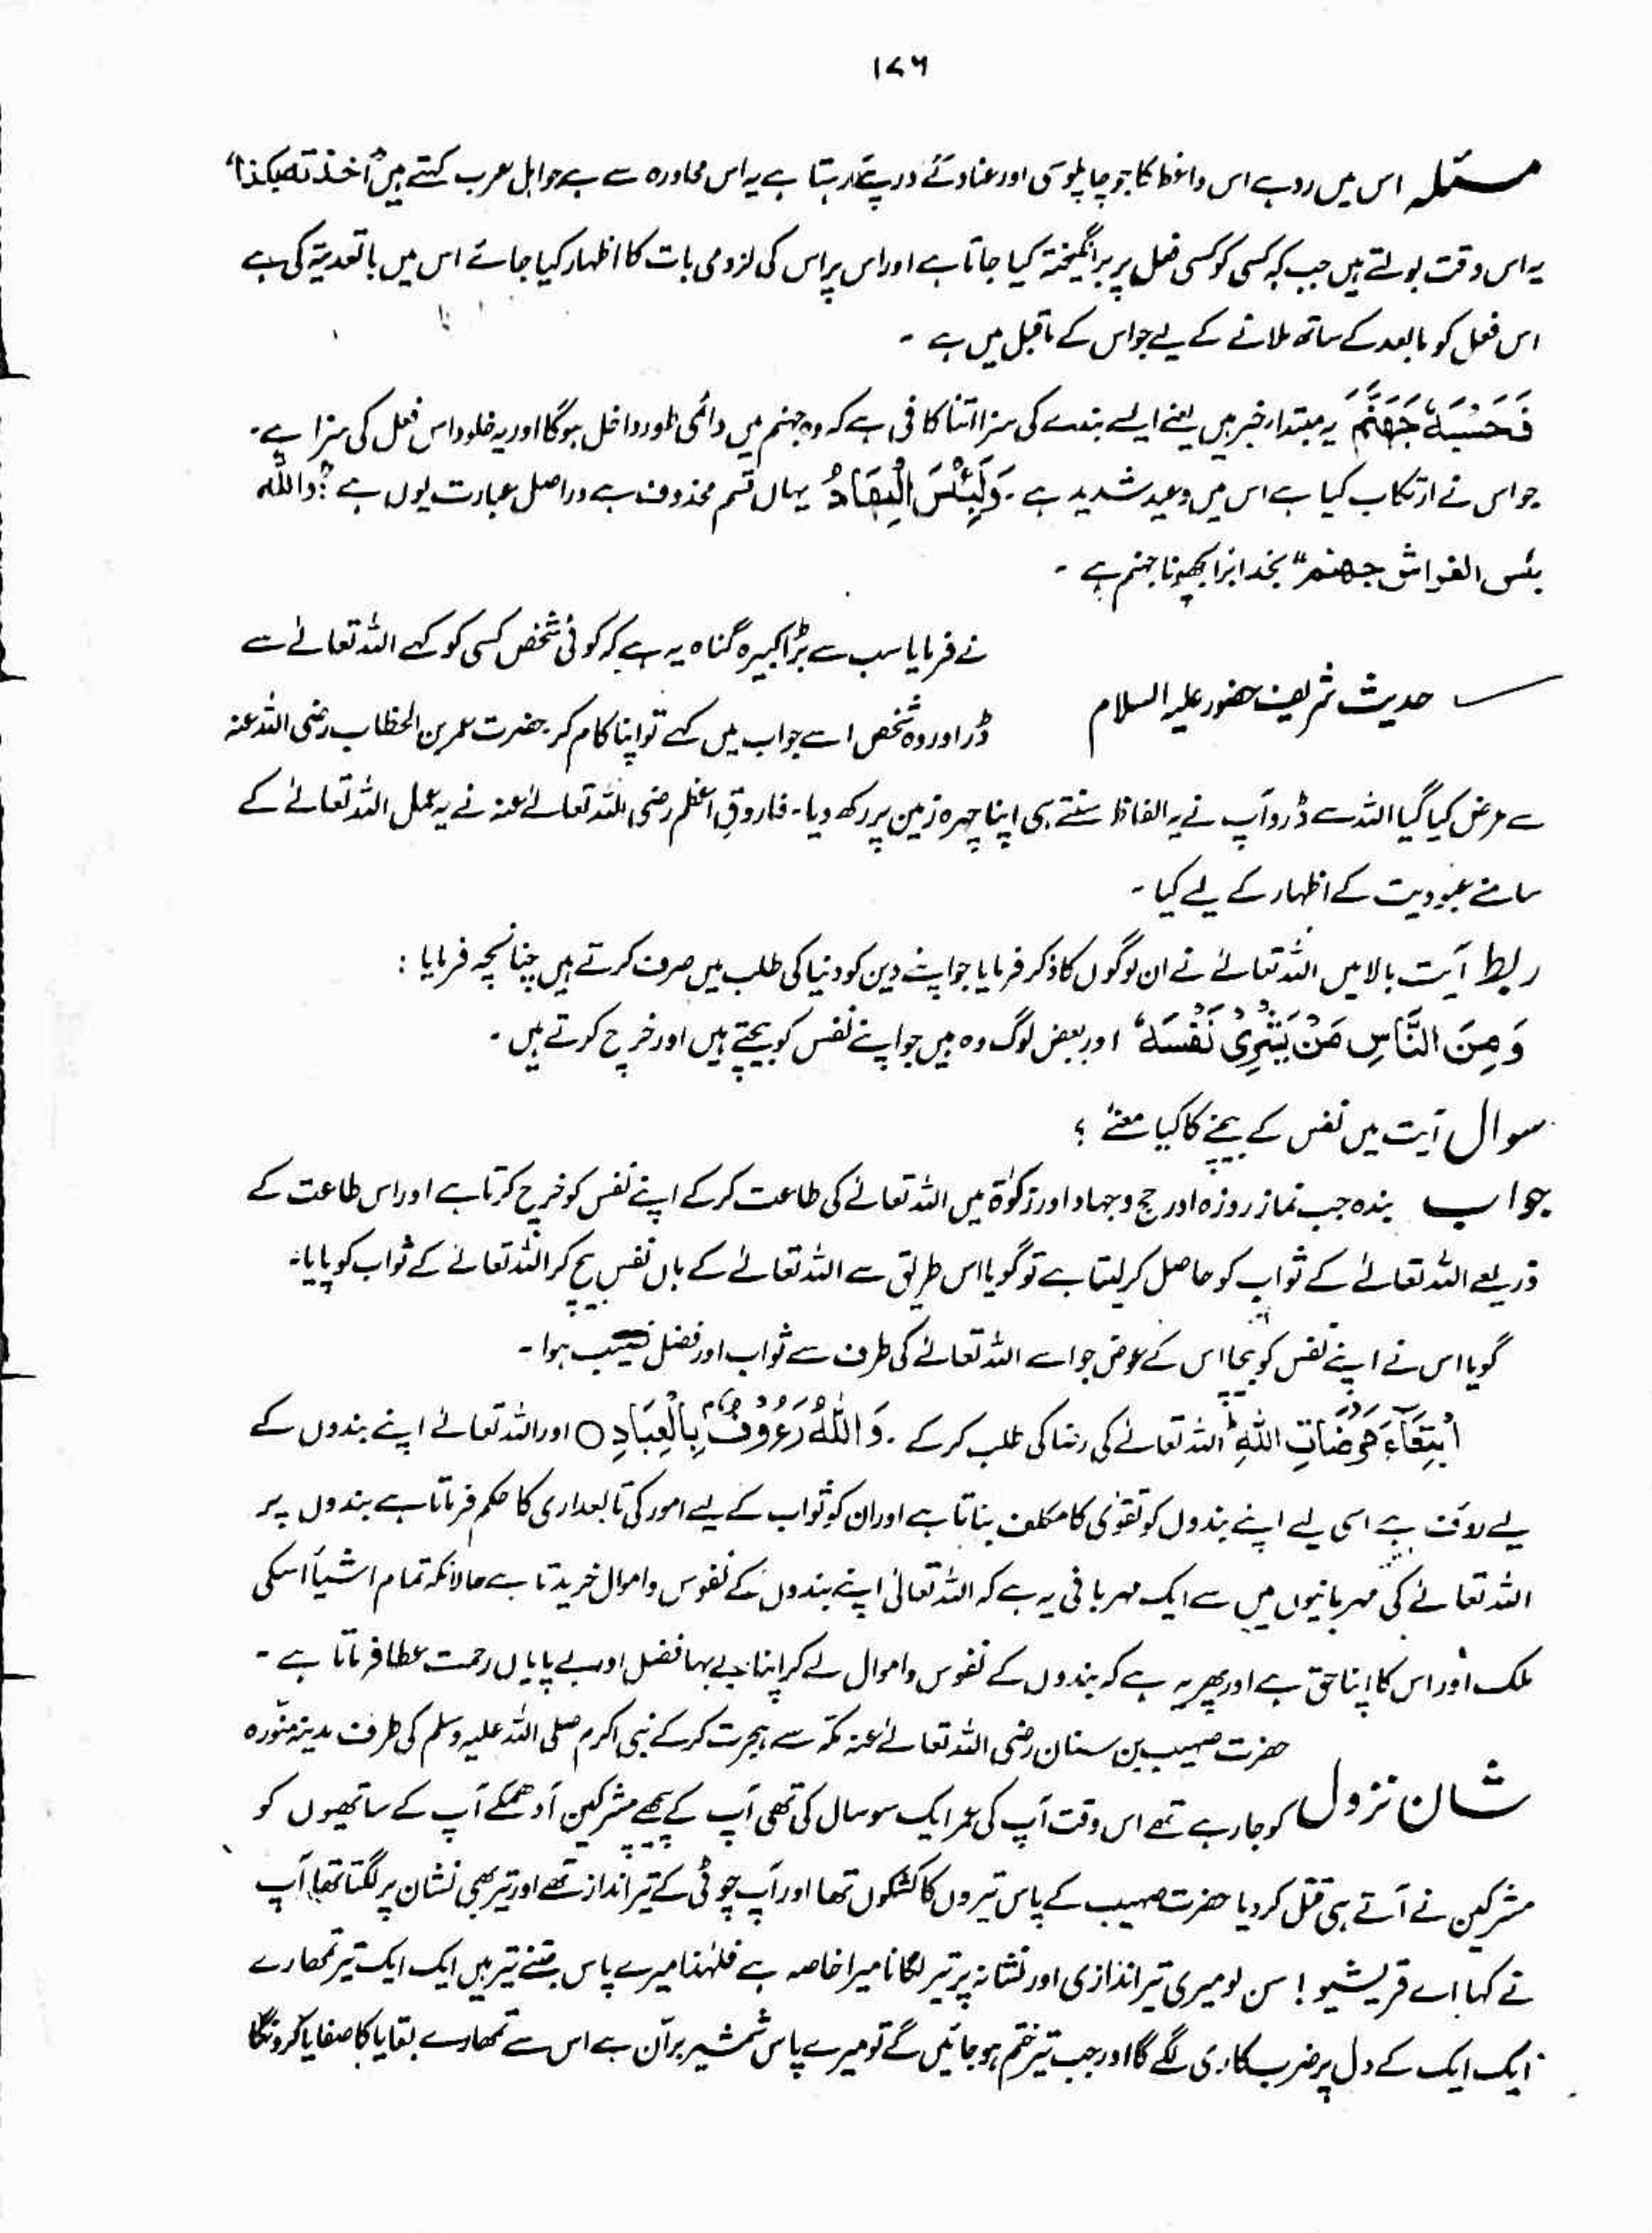 ۱۷۶
مسئلہ اس میں رد ہے اس واعظ کا جو چاپلوسی اور عناد کے درپے رہتا ہے یہ اس محاورہ سے ہے جو اہل عرب کہتے ہیں "اخذتہ بکذا"
یہ اس وقت بولتے ہیں جب کہ کسی کو کسی فعل پر برانگیختہ کیا جاتا ہے اور اس پر اس کی لزومی بات کا اظہار کیا جائے اس میں با تعدیۃ کی ہے
اس فعل کو مابعد کے ساتھ ملانے کے لیے جو اس کے ماقبل میں ہے ۔
فَحَسْبُهٗ جَهَنَّمُ یہ مبتدا، خبر ہیں یعنے ایسے بندے کی سزا اتنا کافی ہے کہ وہ جہنم میں دائمی طور داخل ہوگا اور یہ خلود اس فعل کی سزا ہے ۔
جو اس نے ارتکاب کیا ہے اس میں وعید شدید ہے ۔ وَلَبِئْسَ الْمِهَادُ یہاں قسم محذوف ہے دراصل عبارت یوں ہے : "واللہ
بئس الفراش جھنم" بخدا بُرا بچھونا جہنم ہے ۔
حدیث شریف حضور علیہ السلام نے فرمایا سب سے بڑا کبیرہ گناہ یہ ہے کہ کوئی شخص کسی کو کہے اللہ تعالےٰ سے
ڈر اور وہ شخص اسے جواب میں کہے تو اپنا کام کر حضرت عمر بن الخطاب رضی اللہ عنہ
سے عرض کیا گیا اللہ سے ڈرو آپ نے یہ الفاظ سنتے ہی اپنا چہرہ زمین پر رکھ دیا ۔ فاروق اعظم رضی اللہ تعالےٰ عنہ نے یہ عمل اللہ تعالےٰ کے
سامنے عبودیت کے اظہار کے لیے کیا ۔
ربط آیت بالا میں اللہ تعالےٰ نے ان لوگوں کا ذکر فرمایا جو اپنے دین کو دنیا کی طلب میں صرف کرتے ہیں چنانچہ فرمایا :
وَمِنَ النَّاسِ مَنْ يَّشْرِىْ نَفْسَهُ اور بعض لوگ وہ ہیں جو اپنے نفس کو بیچتے ہیں اور خرچ کرتے ہیں ۔
سوال آیت میں نفس کے بیچنے کا کیا معنےٰ ؟
جواب بندہ جب نماز روزہ اور حج و جہاد اور زکوٰۃ میں اللہ تعالےٰ کی طاعت کر کے اپنے نفس کو خرچ کرتا ہے اور اس طاعت کے
ذریعے اللہ تعالےٰ کے ثواب کو حاصل کر لیتا ہے تو گویا اس طریق سے اللہ تعالےٰ کے ہاں نفس بیچ کر اللہ تعالےٰ کے ثواب کو پایا ۔
گویا اس نے اپنے نفس کو بیچا اس کے عوض جو اسے اللہ تعالےٰ کی طرف سے ثواب اور فضل نصیب ہوا ۔
ابْتِغَآءَ مَرْضَاتِ اللّٰهِ ؕ اللہ تعالےٰ کی رضا کی طلب کر کے ۔ وَاللّٰهُ رَءُوْفٌۢ بِالْعِبَادِ ○ اور اللہ تعالےٰ اپنے بندوں کے
لیے رؤف ہے اسی لیے اپنے بندوں کو تقوٰی کا مکلف بناتا ہے اور ان کو ثواب کے لیے امور کی تابعداری کا حکم فرماتا ہے بندوں پر
اللہ تعالےٰ کی مہربانیوں میں سے ایک مہربانی یہ ہے کہ اللہ تعالیٰ اپنے بندوں کے نفوس و اموال خریدتا ہے حالانکہ تمام اشیأ اسکی
ملک اور اس کا اپنا حق ہے اور پھر یہ ہے کہ بندوں کے نفوس و اموال لے کر اپنا بے بہا فضل اور بے پایاں رحمت عطا فرماتا ہے ۔
شان نزول حضرت صہیب بن سنان رضی اللہ تعالےٰ عنہ مکہ سے ہجرت کر کے نبی اکرم صلی اللہ علیہ وسلم کی طرف مدینہ منورہ
کو جا رہے تھے اس وقت آپ کی عمر ایک سو سال کی تھی آپ کے پیچھے مشرکین آدھمکے آپ کے ساتھیوں کو
مشرکین نے آتے ہی قتل کر دیا حضرت صہیب کے پاس تیروں کا کشکول تھا اور آپ چوٹی کے تیر انداز تھے اور تیر بھی نشان پر لگتا تھا، آپ
نے کہا اے قریشیو ! سن لو میری تیر اندازی اور نشانہ پر تیر لگانا میرا خاصہ ہے فلہٰذا میرے پاس جتنے تیر ہیں ایک ایک تیر تمھارے
ایک ایک کے دل پر ضرب کاری لگے گا اور جب تیر ختم ہو جائیں گے تو میرے پاس شمشیر برآن ہے اس سے تمھارے بقایا کا صفایا کرونگا